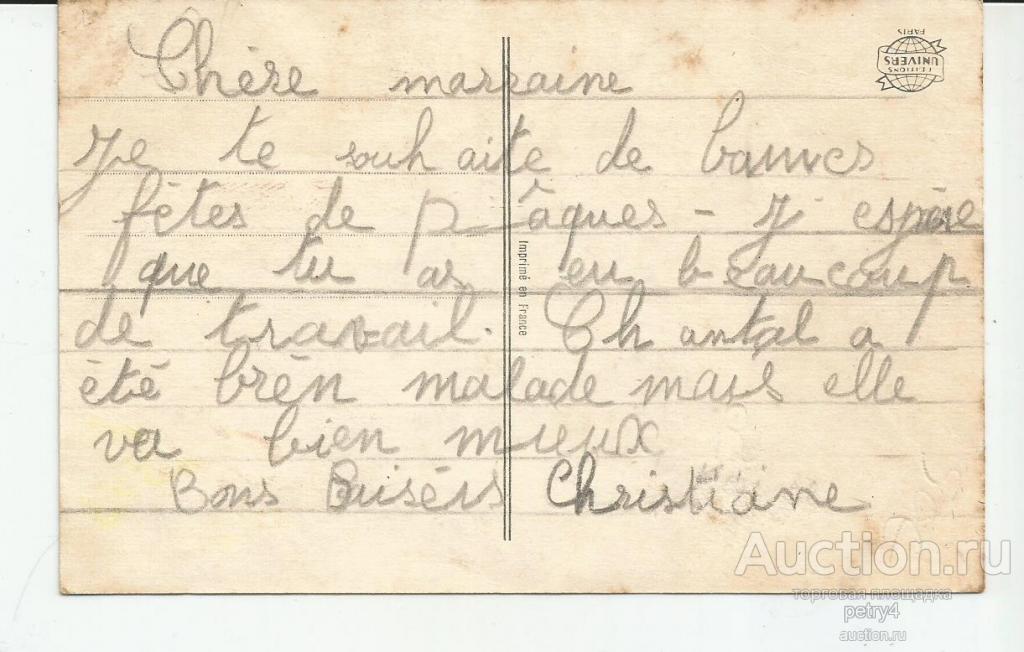 Chère marraine
Je te souhaite de bonnes
fêtes de pâques - J espère
que tu as eu beaucoup
de travail. Chantal a
été bien malade mais elle
va bien mieux
Bons Baisers Christiane
EDITIONS
UNIVERS
PARIS
Imprimé en France
Auction.ru
торговая площадка
petry4
auction.ru